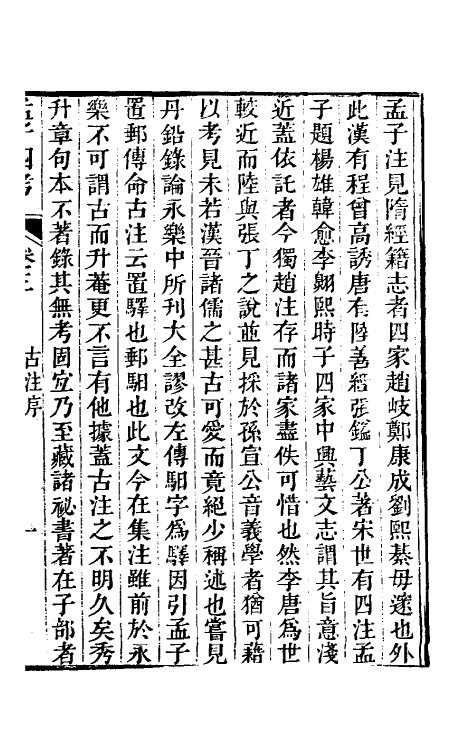 孟子注見隋經籍志者四家趙岐鄭康成劉熙綦毋邃也外
此漢有程曾高誘唐有陸善經張鎰丁公著宋世有四注孟
子題楊雄韓愈李翺熙時子四家中興藝文志謂其旨意淺
近蓋依託者今獨趙注存而諸家盡佚可惜也然李唐為世
較近而陸與張丁之說並見採於孫宣公音義學者猶可藉
以考見未若漢晉諸儒之甚古可愛而竟絕少稱述也嘗見
丹鉛錄論永樂中所刊大全謬改左傳馹字為驛因引孟子
置郵傳命古注云置驛也郵馹也此文今在集注雖前於永
樂不可謂古而升菴更不言有他據蓋古注之不明久矣秀
升章句本不著錄其無考固宜乃至藏諸祕書著在子部者
孟子四考
卷三
古注序
一